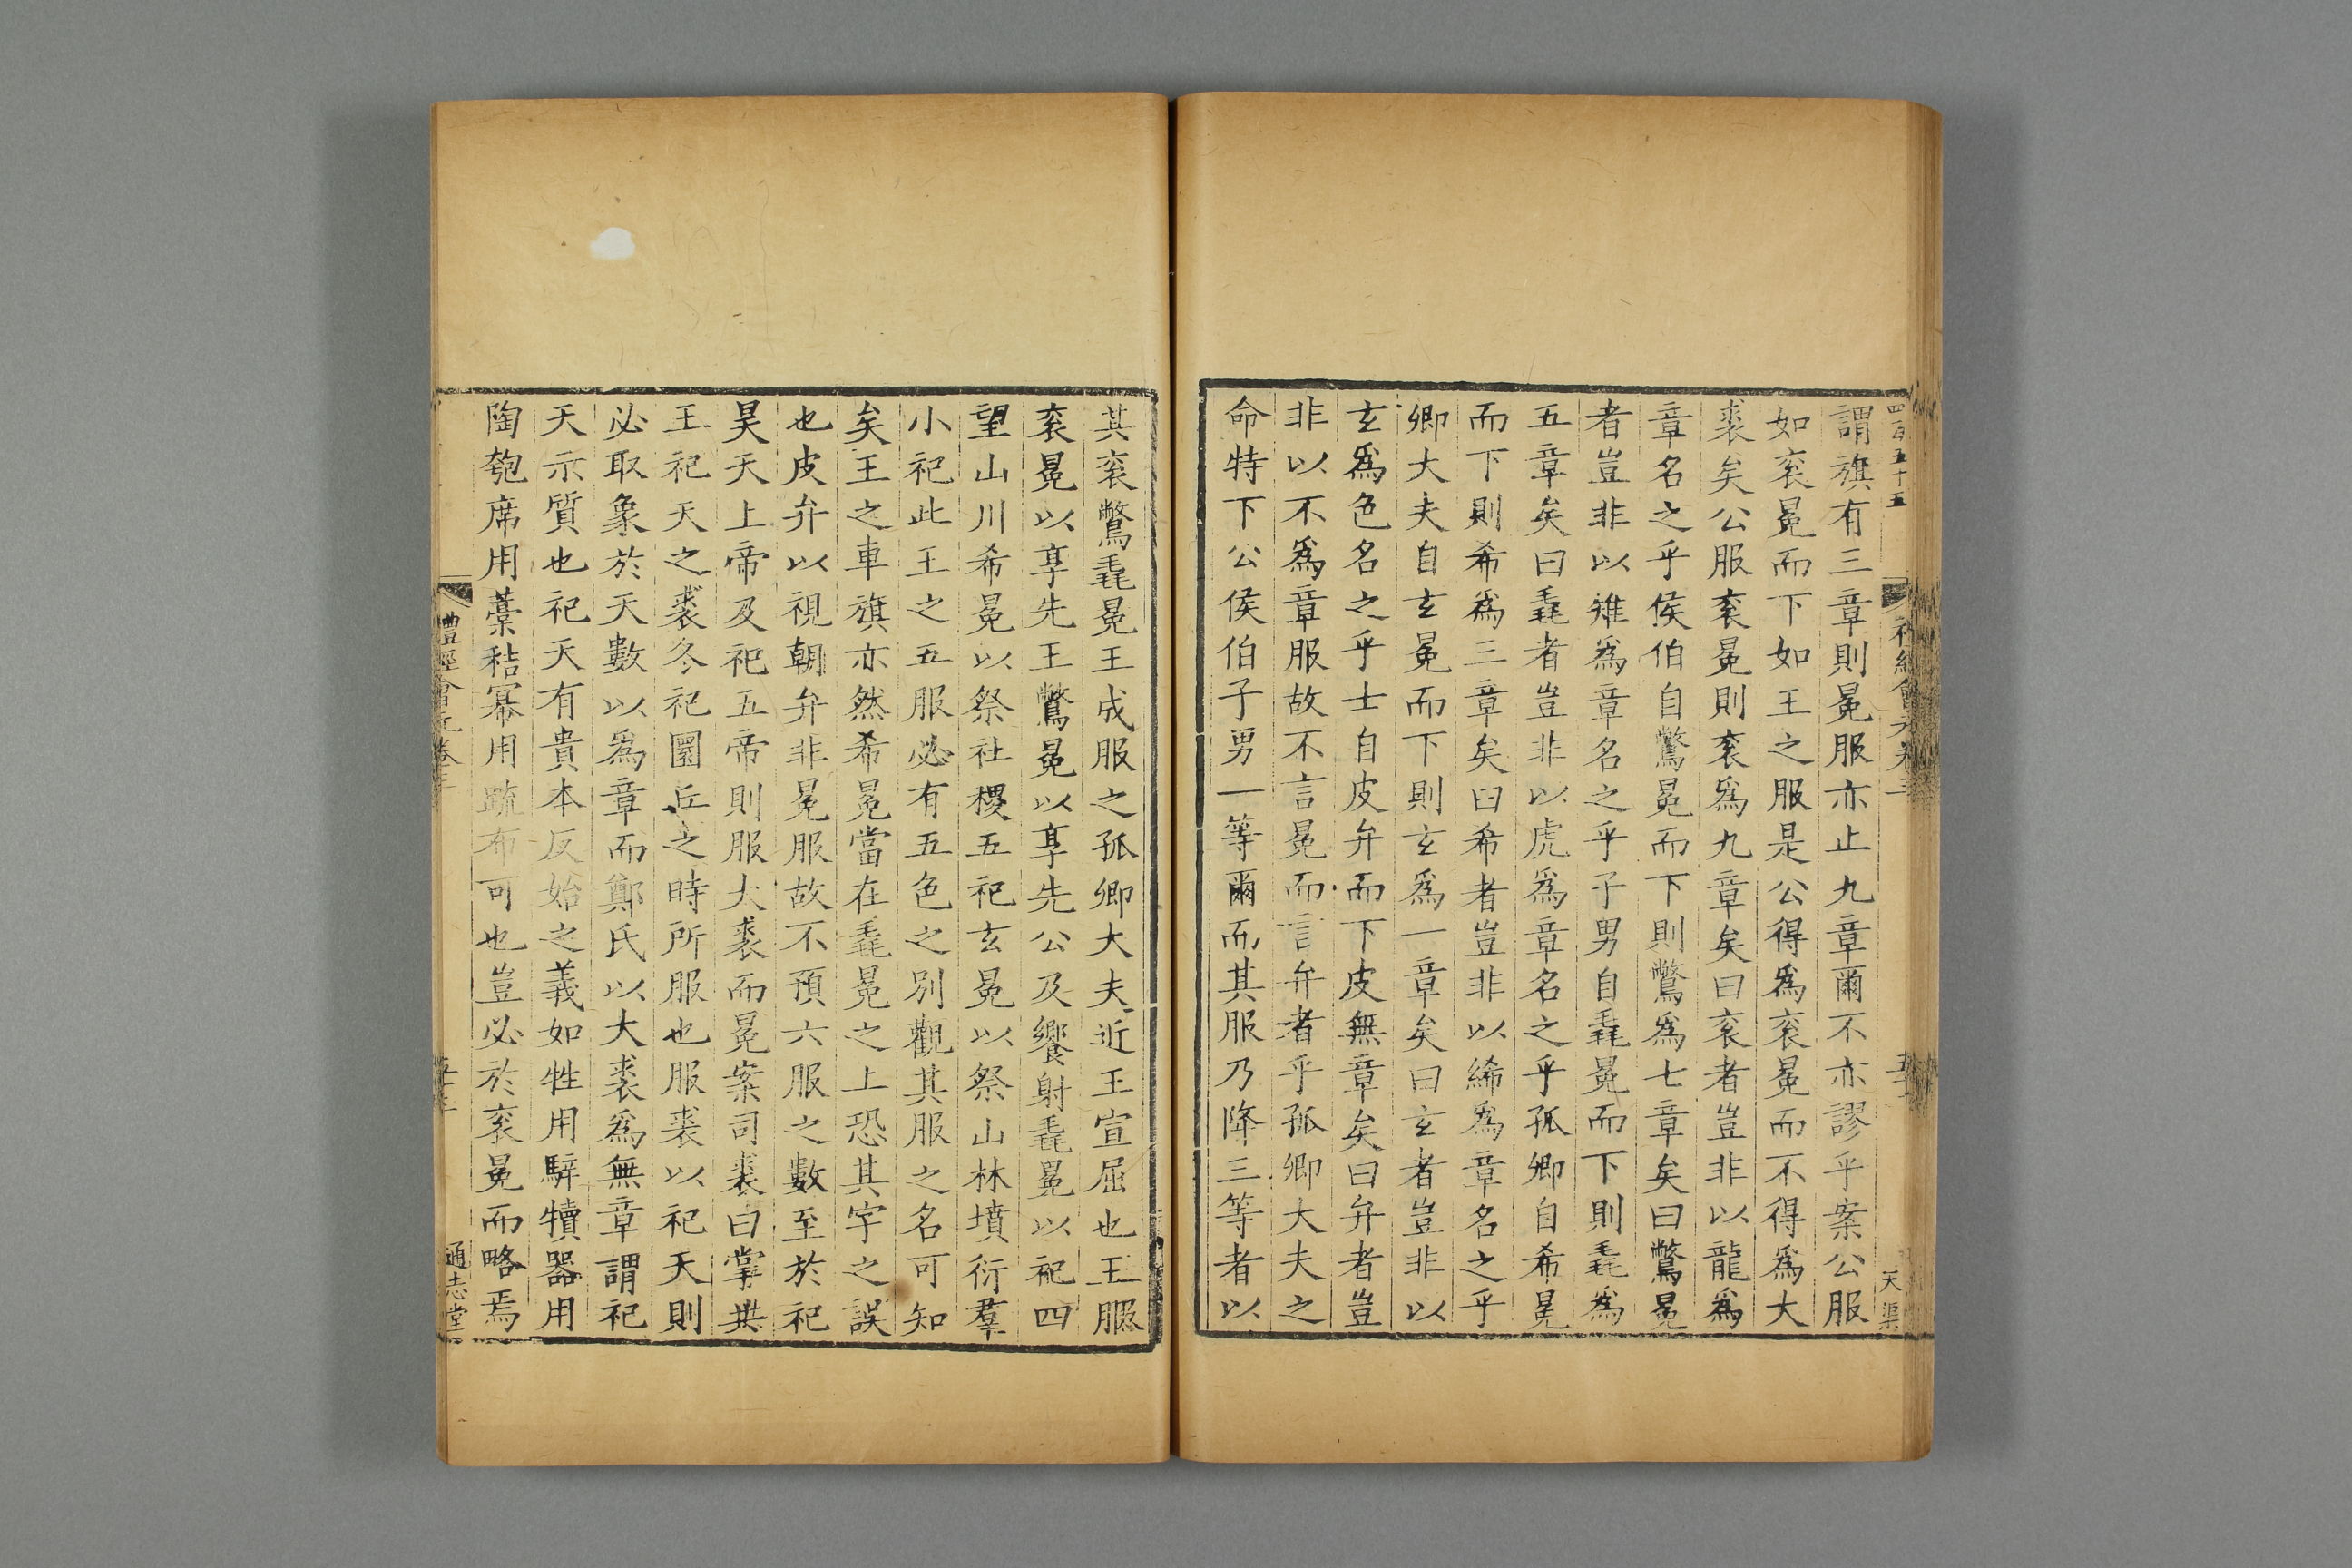 四百五十五
謂旗有三章則冕服亦止九章爾不亦謬乎案公服
如衮冕而下如王之服是公得爲衮冕而不得爲大
裘矣公服衮冕則衮爲九章矣曰衮者豈非以龍爲
章名之乎侯伯自鷩冕而下則鷩爲七章矣曰鷩冕
者豈非以雉爲章名之乎子男自毳冕而下則毳爲
五章矣曰毳者豈非以虎爲章名之乎孤卿自希冕
而下則希爲三章矣曰希者豈非以絺爲章名之乎
卿大夫自玄冕而下則玄爲一章矣曰玄者豈非以
玄爲色名之乎士自皮弁而下皮無章矣曰弁者豈
非以不爲章服故不言冕而言弁者乎孤卿大夫之
命特下公侯伯子男一等爾而其服乃降三等者以
其衮鷩毳冕王成服之孤卿大夫近王宣屈也王服
衮冕以享先王鷩冕以享先公及饗射毳冕以祀四
望山川希冕以祭社稷五祀玄冕以祭山林墳衍羣
小祀此王之五服必有五色之別觀其服之名可知
矣王之車旗亦然希冕當在毳冕之上恐其字之誤
也皮弁以視朝弁非冕服故不預六服之數至於祀
昊天上帝及祀五帝則服大裘而冕案司裘曰掌共
王祀天之裘冬祀圜丘之時所服也服裘以祀天則
必取象於天數以爲章而鄭氏以大裘爲無章謂祀
天示質也祀天有貴本反始之義如牲用騂犢器用
陶匏席用藁秸冪用疏布可也豈必於衮冕而略焉
通志堂